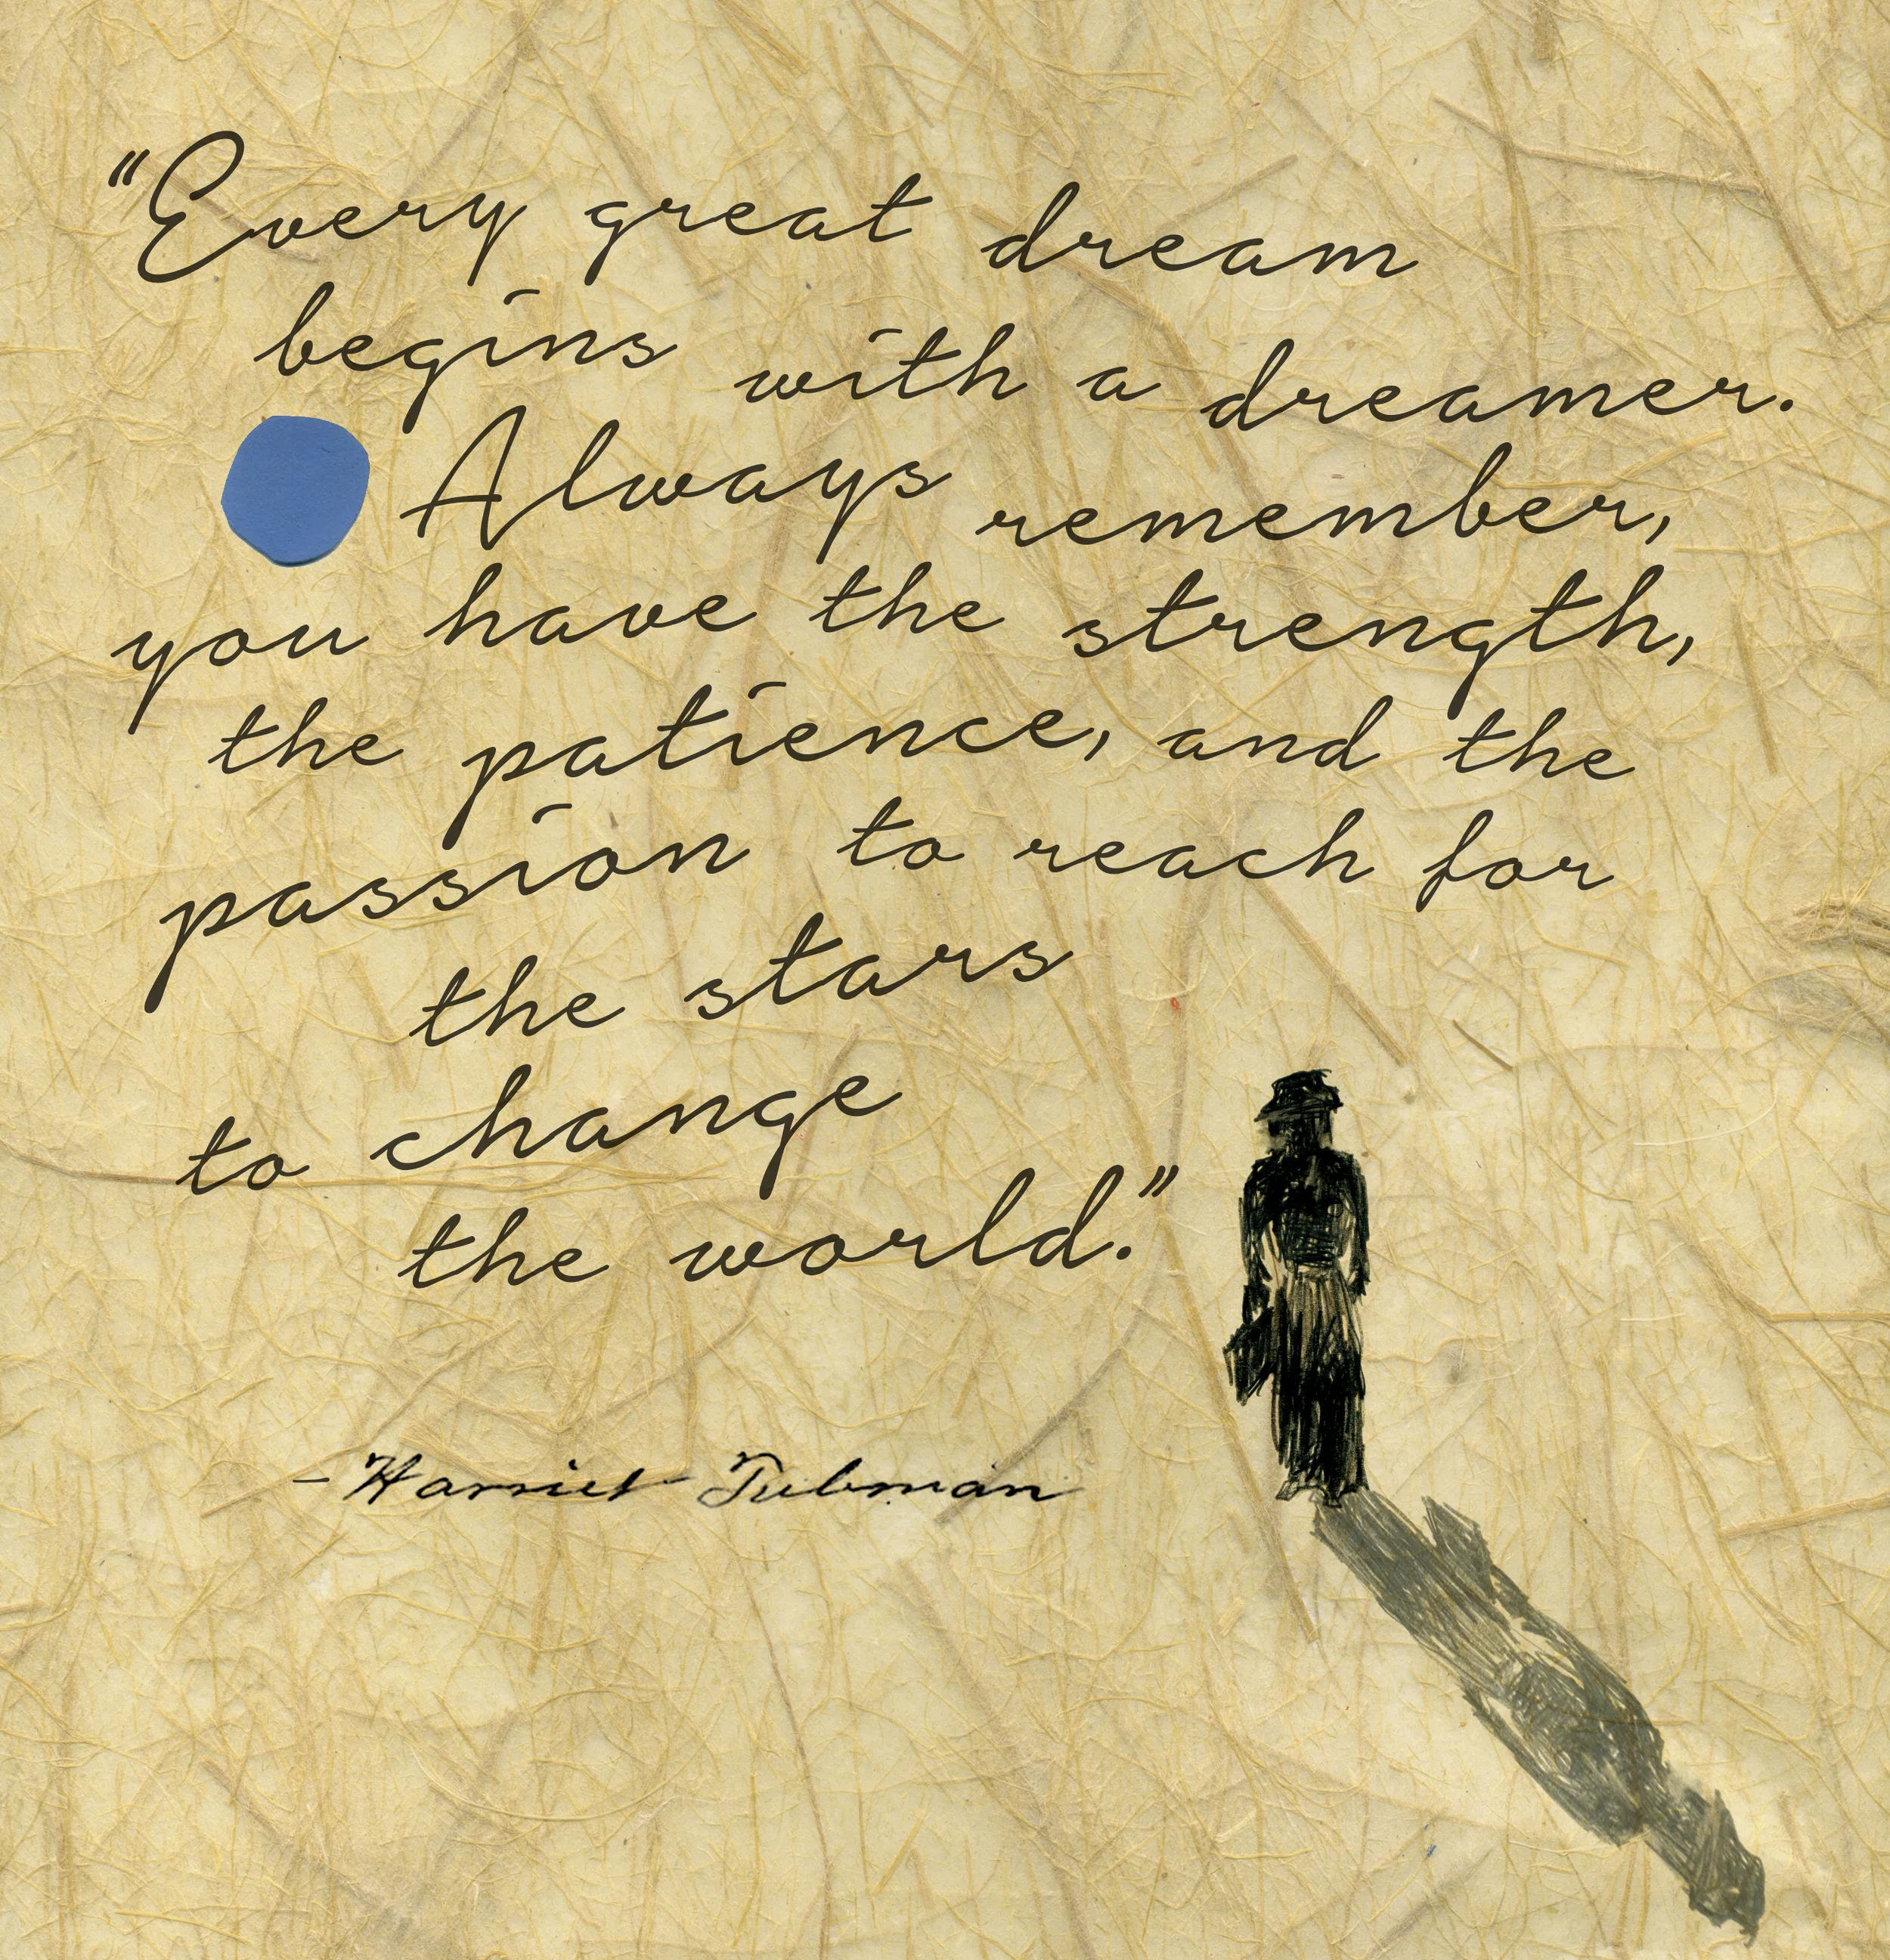 “Every great dream
begins with a dreamer.
Always remember,
you have the strength,
the patience, and the
passion to reach for
the stars
to change
the world.”
- Harriet Tubman